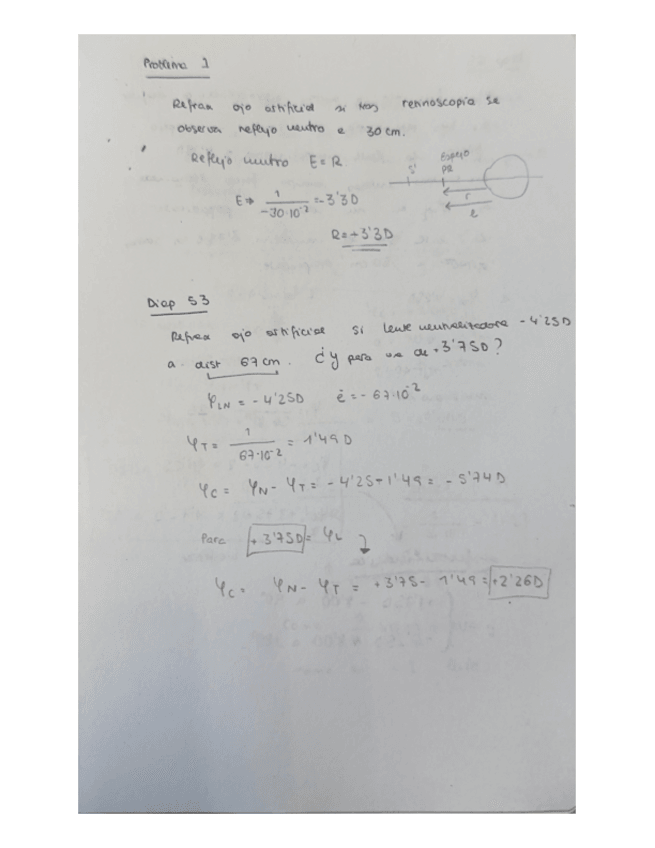 Problema 1
Refrax ojo artificial si tras retinoscopia se
observa reflejo neutro a 30 cm.
Reflejo neutro E = R
S' Espejo
PR
r
e
E ⇒ 1 / -30·10⁻² = -3'3D
R = -3'3D
Diap 53
Refrax ojo artificial si lente neutralizadora -4'25D
a dist 67 cm. ¿y para una de +3'75D?
φLN = -4'25D e = -67·10⁻²
φT = 1 / 67·10⁻² = 1'49D
φC = φN - φT = -4'25+1'49 = -5'74D
Para +3'75D = φL
φC = φN - φT = +3'75 - 1'49 = +2'26D